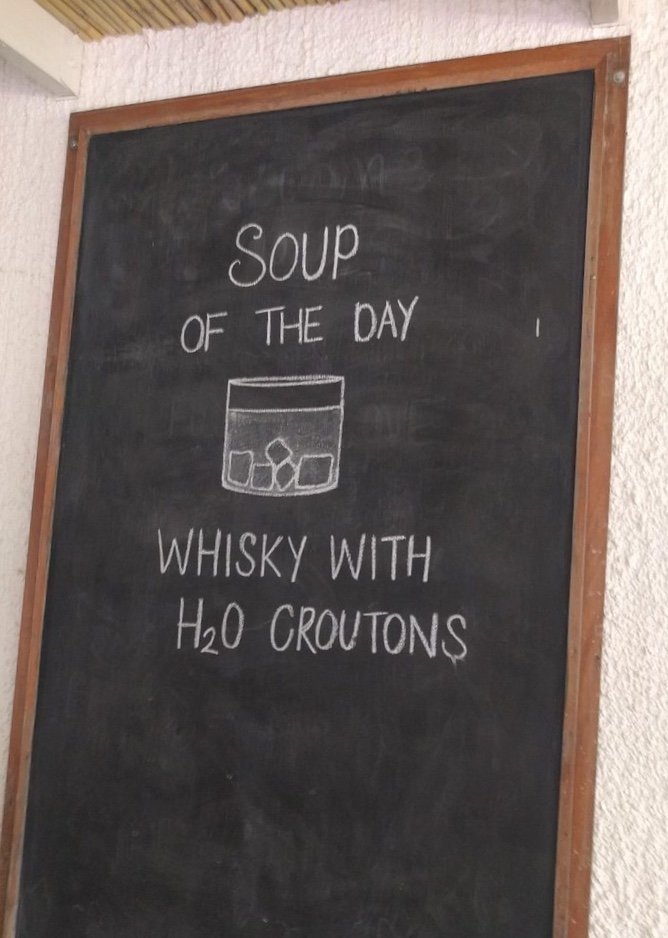 SOUP
OF THE DAY
WHISKY WITH
H₂O CROUTONS